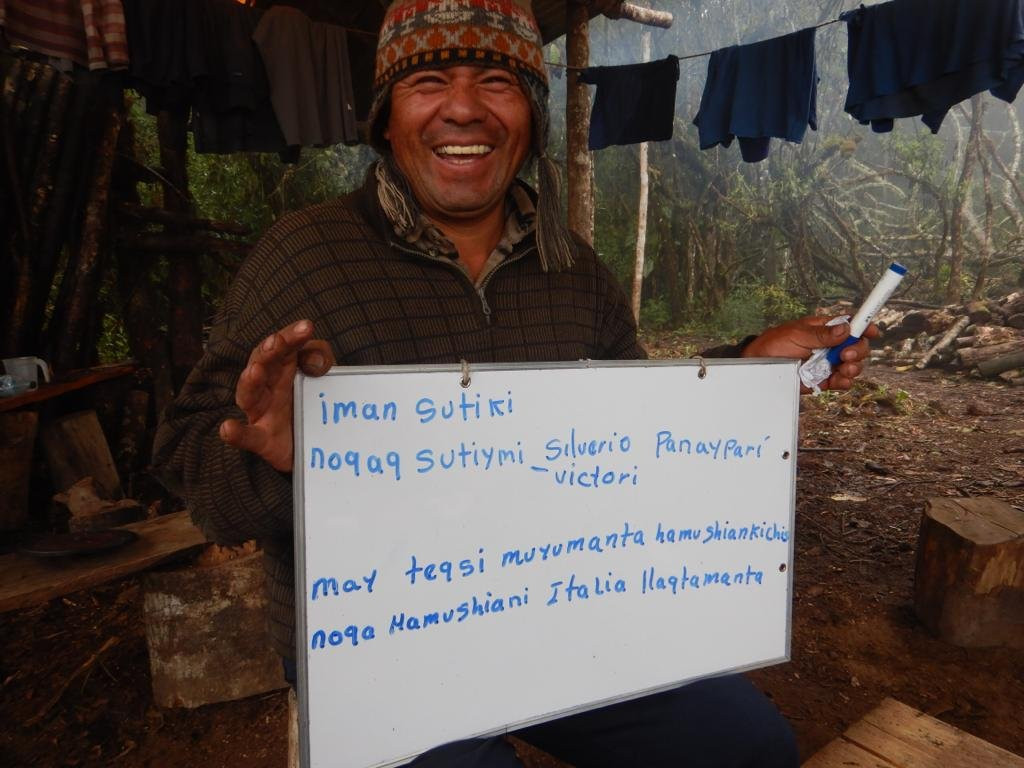 iman sutiki
noqaq sutiymi - silverio Panayparí
victori
may teqsi muyumanta hamushiankichis
noqa Hamushiani Italia llaqtamanta